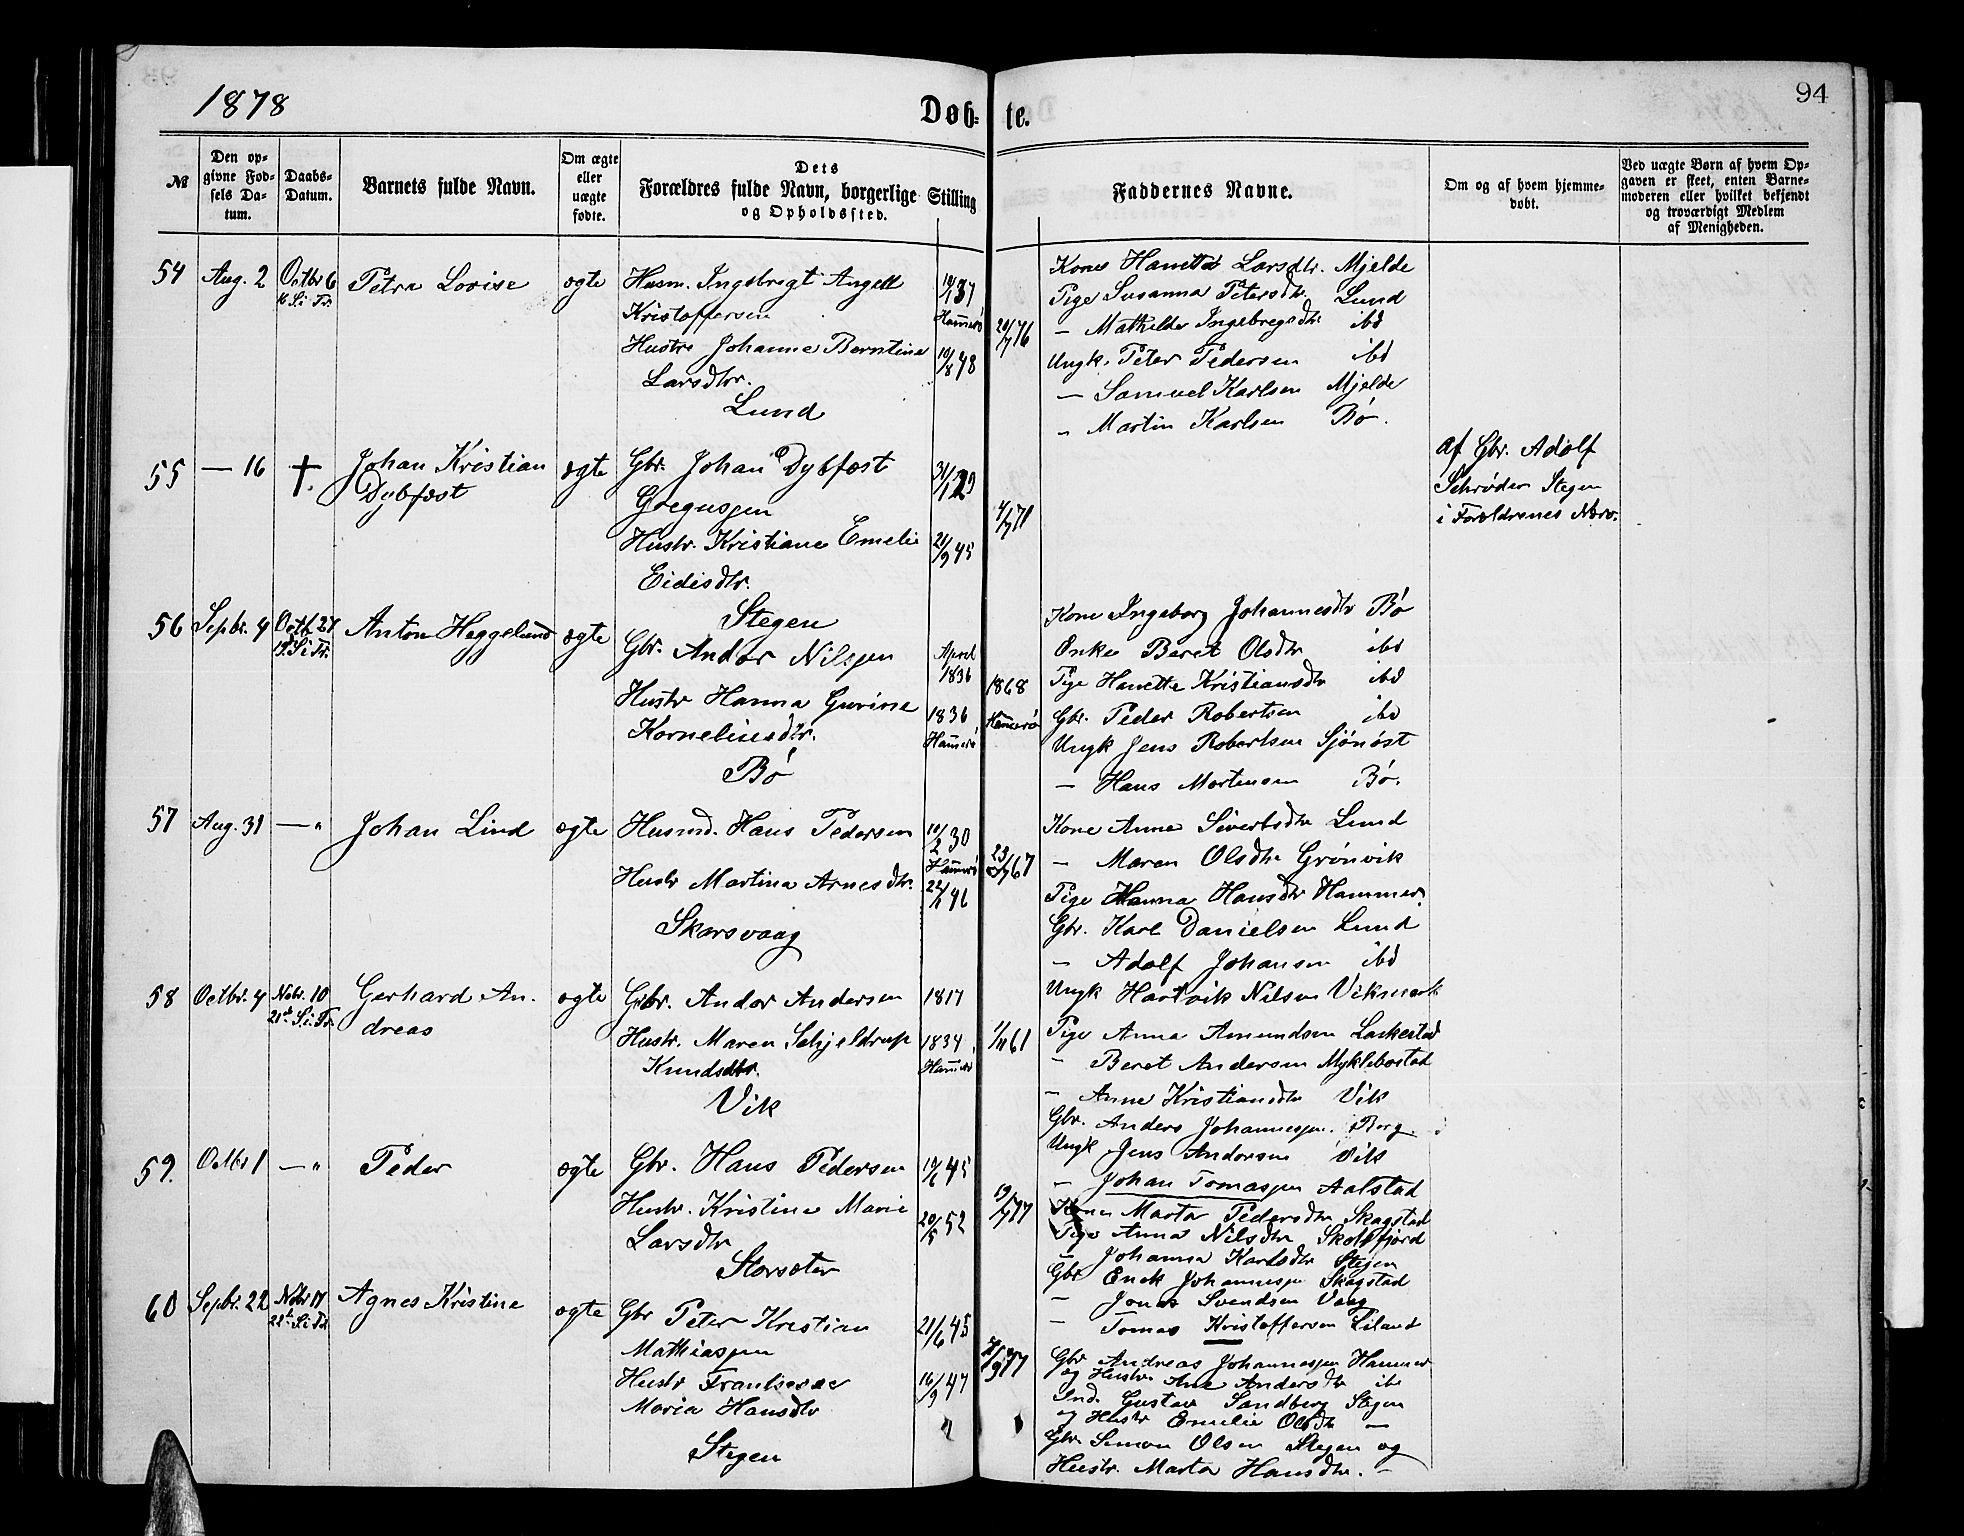 1878
Døb-
te.
94
№
Den op-
givne Fød-
sels Da-
tum.
Daabs-
Datum.
Barnets fulde Navn.
Om ægte
eller
uægte
fødte.
Dets
Forældres fulde Navn, borgerlige Stilling
og Opholdssted.
Faddernes Navne.
Om og af hvem hjemme-
døbt.
Ved uægte Børn af hvem Op-
gaven er skeet, enten Barne-
moderen eller hvilket bekjendt
og troværdigt Medlem
af Menigheden.
54
Aug. 2
Octbr 6
S. i Tr.
Petra Lovise
ægte
Husm. Ingebrigt Angell
Kristoffersen
Hustr Johanne Berntine
Larsdtr.
Lund
Hamerø
10/8 48
20/7 76
Kone Larsdtr. Mjelde
Pige Susanna Petersdtr Lund
— Mathilde Ingebregsdtr ibd
Ungk. Peter Pedersen ibd
— Samuel Karlsen Mjelde
" Martin Karlsen Bø.
55
— 16
†.
Johan Kristian
Dybfest
ægte
Gbr. Johan Dybfest
Gregusjen
Hustr. Kristiane Emelie
Eidisdtr.
Stegen
31/1 29
21/9 45
4/7 71
af Gbr. Adolf
Schrøder Stegen
i Forældrenes Nærv.
56
Sepbr. 4
Octb 27
19. S. i Tr.
Anton Heggelund
ægte
Gbr. Andor Nilsjen
Hustr Hanna Gurine
Korneliusdtr.
Bø
April
1836
1836
Hamerø
1868
Hamerø
Kone Ingeborg Johannesdtr Bø
Enke Beret Olsdtr ibd
Pige Hanette Kristiansdtr ibd
Gbr. Peder Robertsen ibd
Ungk Jens Robertsen Sjønøst
— Hans Mortensen Bø.
57
Aug. 31
— "
Johan Lind
ægte
Husmd. Hans Pedersen
Hustr Martina Arnesdtr.
Skarsvaag
10/2 30
Hamerø
46
67
Kone Anne Sivertsdtr Lund
— Maren Olsdtr Grønvik
Pige Hanna Hansdtr Hammer.
Gbr. Karl Danielsen Lund
— Adolf Johansen ibd
Ungk Hartvik Nilsen Vikmark
58
Octbr. 4
Nobr. 10
21de S. i Tr.
Gerhard An-
dreas
ægte
Gbr. Andor Andersen
Hustr. Maren Schjeldrup
Knudsdtr.
Vik
1817
1834
Hamerø
1/11 61
Pige Anna Amundsen Laskestad
— Beret Andersen Myklebostad
— Anne Kristiansdtr Vik
Gbr. Anders Johannesjen. Borg
Ungk Jens Andorsen Vik
— Johan Tomasjen Aalstad
59.
Octbr 1
— "
Peder
ægte
Gbr. Hans Pedersen
Hustr. Kristine Marie
Larsdtr
Storsæter
10/6 45
20/5 52
19/7 77
Kone Marta Pedersdtr Skagstad
Pige Anna Nilsdtr Skotsfjord
— Johanna Karlsdtr Stegen
Gbr Enok Johannesjen Skagstad
— Jonas Svendsen Vaag
— Tomas Kristoffersen Liland
60
Sepbr. 22
Nobr 17
22de S. i Tr.
Agnes Kristine
ægte
Gbr Peter Kristian
Mathiasjen
Hustr
Maria Hansdtr
Stegen
21/6 45
16/9 47
77
Gbr Andreas Johannesjen Hammer
og Hustr Ane Andersdtr ibd
Ind. Gustav Sandberg Stegen
og Hustr Emelie Olsdtr —
Gbr Simon Olsen Stegen og
Hustr. Marta Hansdtr. —